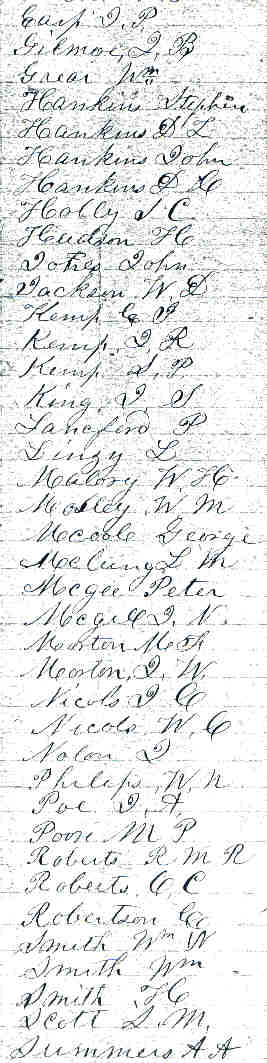 Earp J. P.
Gilmore, J. B
Grear Wm
Hankins Stephen
Hankins D L
Hankins John
Hankins D H
Holly J C
Hudson H
Jones John
Jackson W. D
Kemp C F
Kemp, J. R
Kemp J. P
King, J S
Lancford P
Linzy L
Malory W. H
Mobley W M
McCoole George
McClung L M
McGee Peter
McGill J. N.
Morton M
Morton, J. W.
Nicols J C
Nicols W. C
Nolon J
Philaps, W. N
Poe J. A.
Poore M P
Roberts R M R
Roberts, C, C
Robertson
Smith Wm W
Smith Wm
Smith H
Scott S. M.
Summers A A